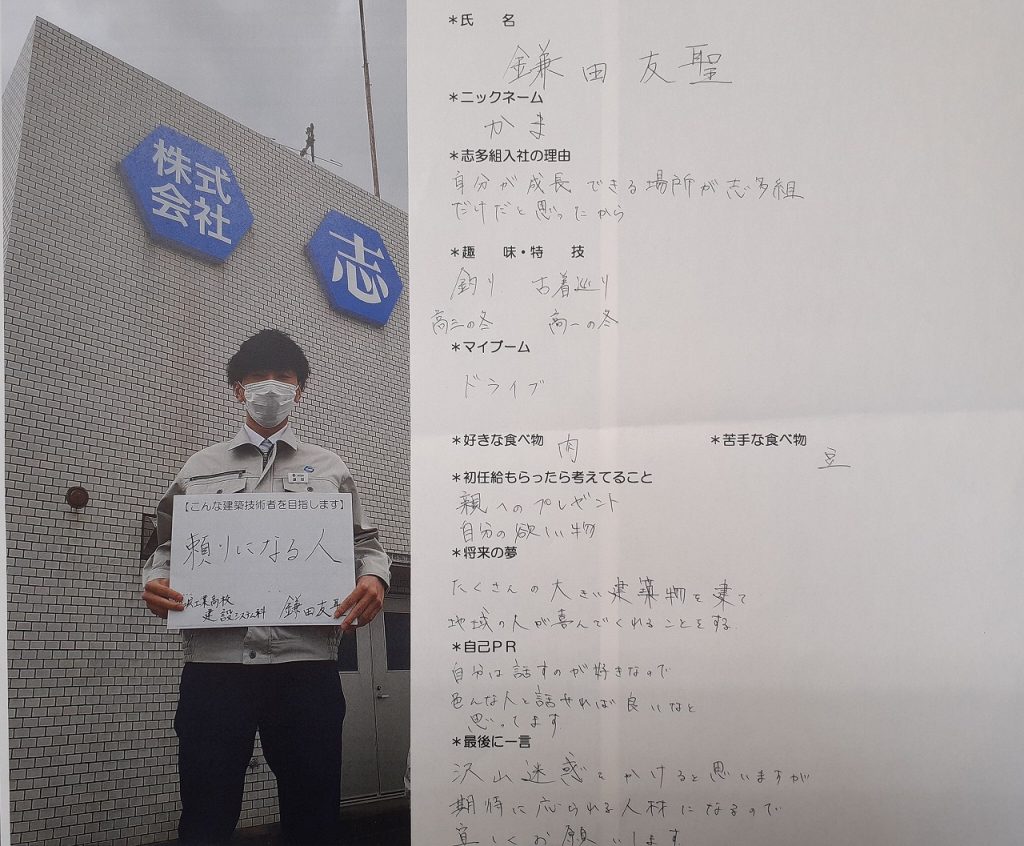 株式
会社
志
【こんな建築技術者を目指します】
頼りになる人
工業高校
建設システム科 鎌田友聖
＊氏　名
鎌田友聖
＊ニックネーム
かま
＊志多組入社の理由
自分が成長できる場所が志多組
だけだと思ったから
＊趣　味・特　技
釣り 古着巡り
高三の冬 高一の冬
＊マイブーム
ドライブ
＊好きな食べ物 肉 ＊苦手な食べ物 豆
＊初任給もらったら考えてること
親へのプレゼント
自分の欲しい物
＊将来の夢
たくさんの大きい建築物を建て
地域の人が喜んでくれることをする.
＊自己ＰＲ
自分は話すのが好きなので
色んな人と話せれば良いなと
思ってます
＊最後に一言
沢山迷惑をかけると思いますが
期待に応られる人材になるので
宜しくお願いします